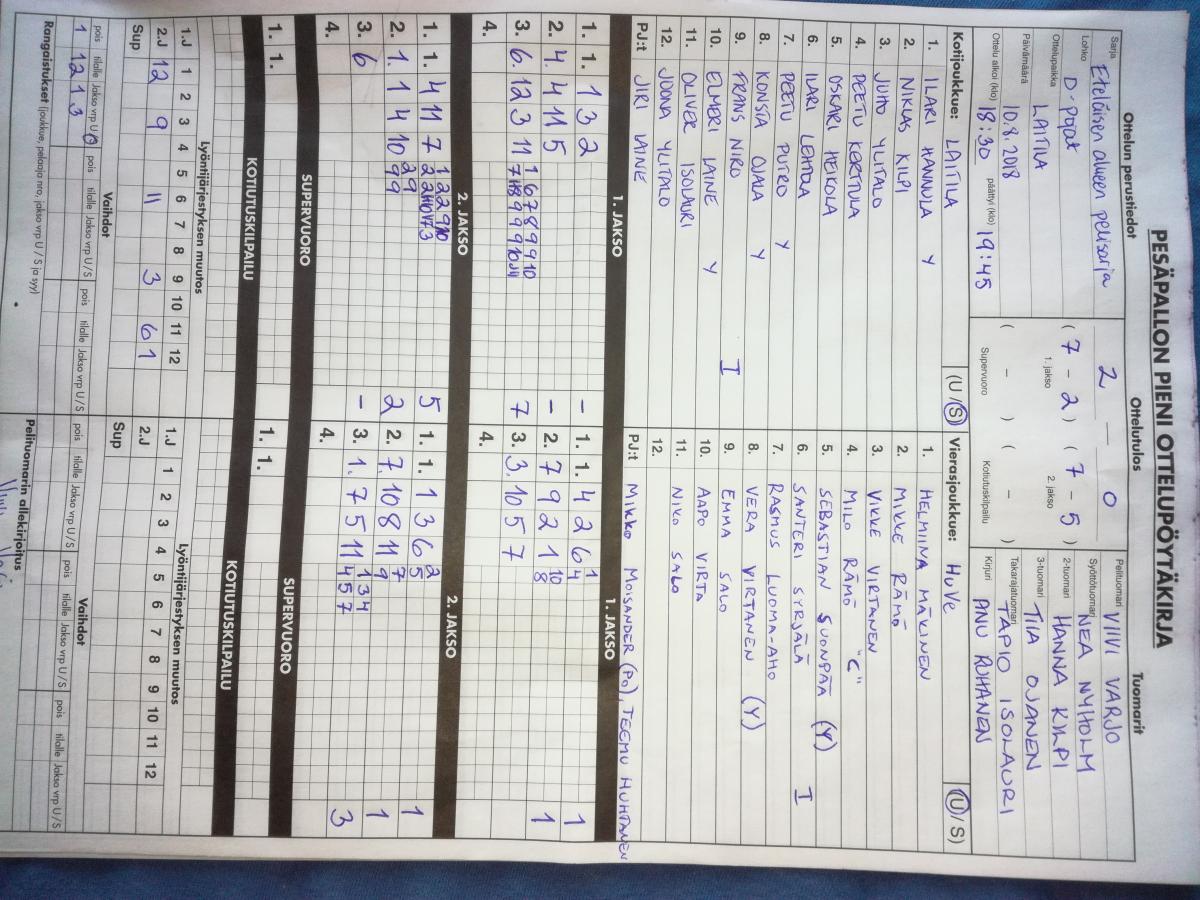 PESÄPALLON PIENI OTTELUPÖYTÄKIRJA
Ottelun perustiedot
Sarja Eteläisen alueen pelisarja
Lohko D-pojat
Ottelupaikka LAITILA
Päivämäärä 10.8.2018
Ottelu alkoi (klo) 18:30 päättyi (klo) 19:45
Ottelutulos
2 — 0
( 7 - 2 ) ( 7 - 5 )
1. jakso 2. jakso
( - ) ( - )
Supervuoro Kotiutuskilpailu
Tuomarit
Pelituomari VIIVI VARJO
Syöttötuomari NEA NYHOLM
2-tuomari HANNA KILPI
3-tuomari TIIA OJANEN
Takarajatuomari TAPIO ISOLAURI
Kirjuri ANU RUHANEN
Kotijoukkue: LAITILA (U / S)
1. ILARI HANNULA Y
2. NIKLAS KILPI
3. JUHO YLITALO
4. PEETU KERTTULA
5. OSKARI HEIKOLA
6. ILARI LEHTOLA
7. PEETU PUTRO Y
8. KONSTA OJALA Y
9. FRANS NIRO I
10. ELMERI LAINE Y
11. OLIVER ISOLAURI
12. JOONA YLITALO
PJ:t JIRI LAINE
Vierasjoukkue: HuVe (U / S)
1. HELMIINA MÄKINEN
2. MIKKE RÄMÖ
3. VIKKE VIRTANEN
4. MILO RÄMÖ "C"
5. SEBASTIAN SUONPÄÄ (Y)
6. SANTERI SYRJÄLÄ I
7. RASMUS LUOMA-AHO
8. VERA VIRTANEN (Y)
9. EMMA SALO
10. AAPO VIRTA
11. NIKO SALO
12.
PJ:t MIKKO MOISANDER (PO), TEEMU HUHTANEN
1. JAKSO
1. 1. 1 3 2 -
2. 4. 4 11 5 -
3. 6. 12 3 11 7
4.
1. JAKSO
1. 1. 4 2 6 1 4 1
2. 7 9 2 1 10 8 1
3. 3. 10 5 7
4.
2. JAKSO
1. 1. 4 11 7 5
2. 1. 1 4 10 2
3. 6 -
4.
2. JAKSO
1. 1. 1 3 6 2 5 1
2. 7. 10 8 11 7 9 1
3. 1. 7 5 11 1 3 4 4 5 7 3
4.
SUPERVUORO
1. 1.
SUPERVUORO
1. 1.
KOTIUTUSKILPAILU
KOTIUTUSKILPAILU
Lyöntijärjestyksen muutos
1.J 1 2 3 4 5 6 7 8 9 10 11 12
2.J 12 9 11 3 6 1
Sup
Lyöntijärjestyksen muutos
1.J 1 2 3 4 5 6 7 8 9 10 11 12
2.J
Sup
Vaihdot
pois tilalle Jakso vrp U/S pois tilalle Jakso vrp U/S pois tilalle Jakso vrp U/S pois tilalle Jakso vrp U/S
1 12 1 3
Vaihdot
pois tilalle Jakso vrp U/S pois tilalle Jakso vrp U/S pois tilalle Jakso vrp U/S pois tilalle Jakso vrp U/S
Rangaistukset (joukkue, pelaaja nro, jakso vrp U / S ja syy)
Pelituomarin allekirjoitus